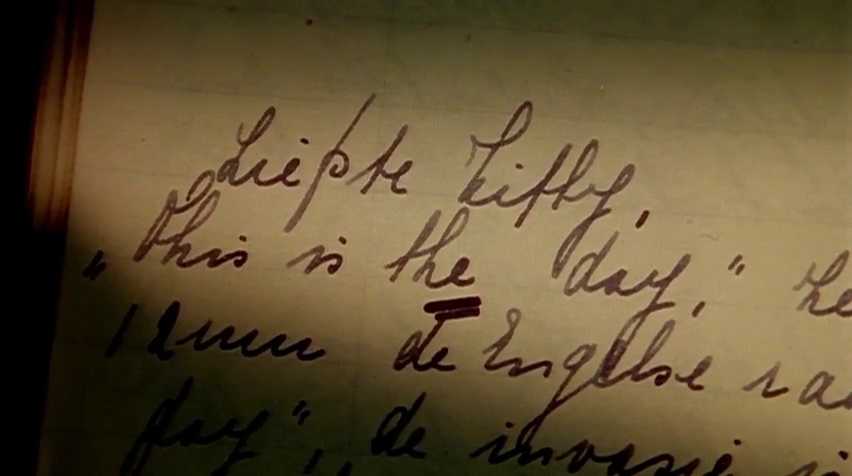 Liefste Kitty,
„This is the day,"
12 uur de Engelse
day", de invasie